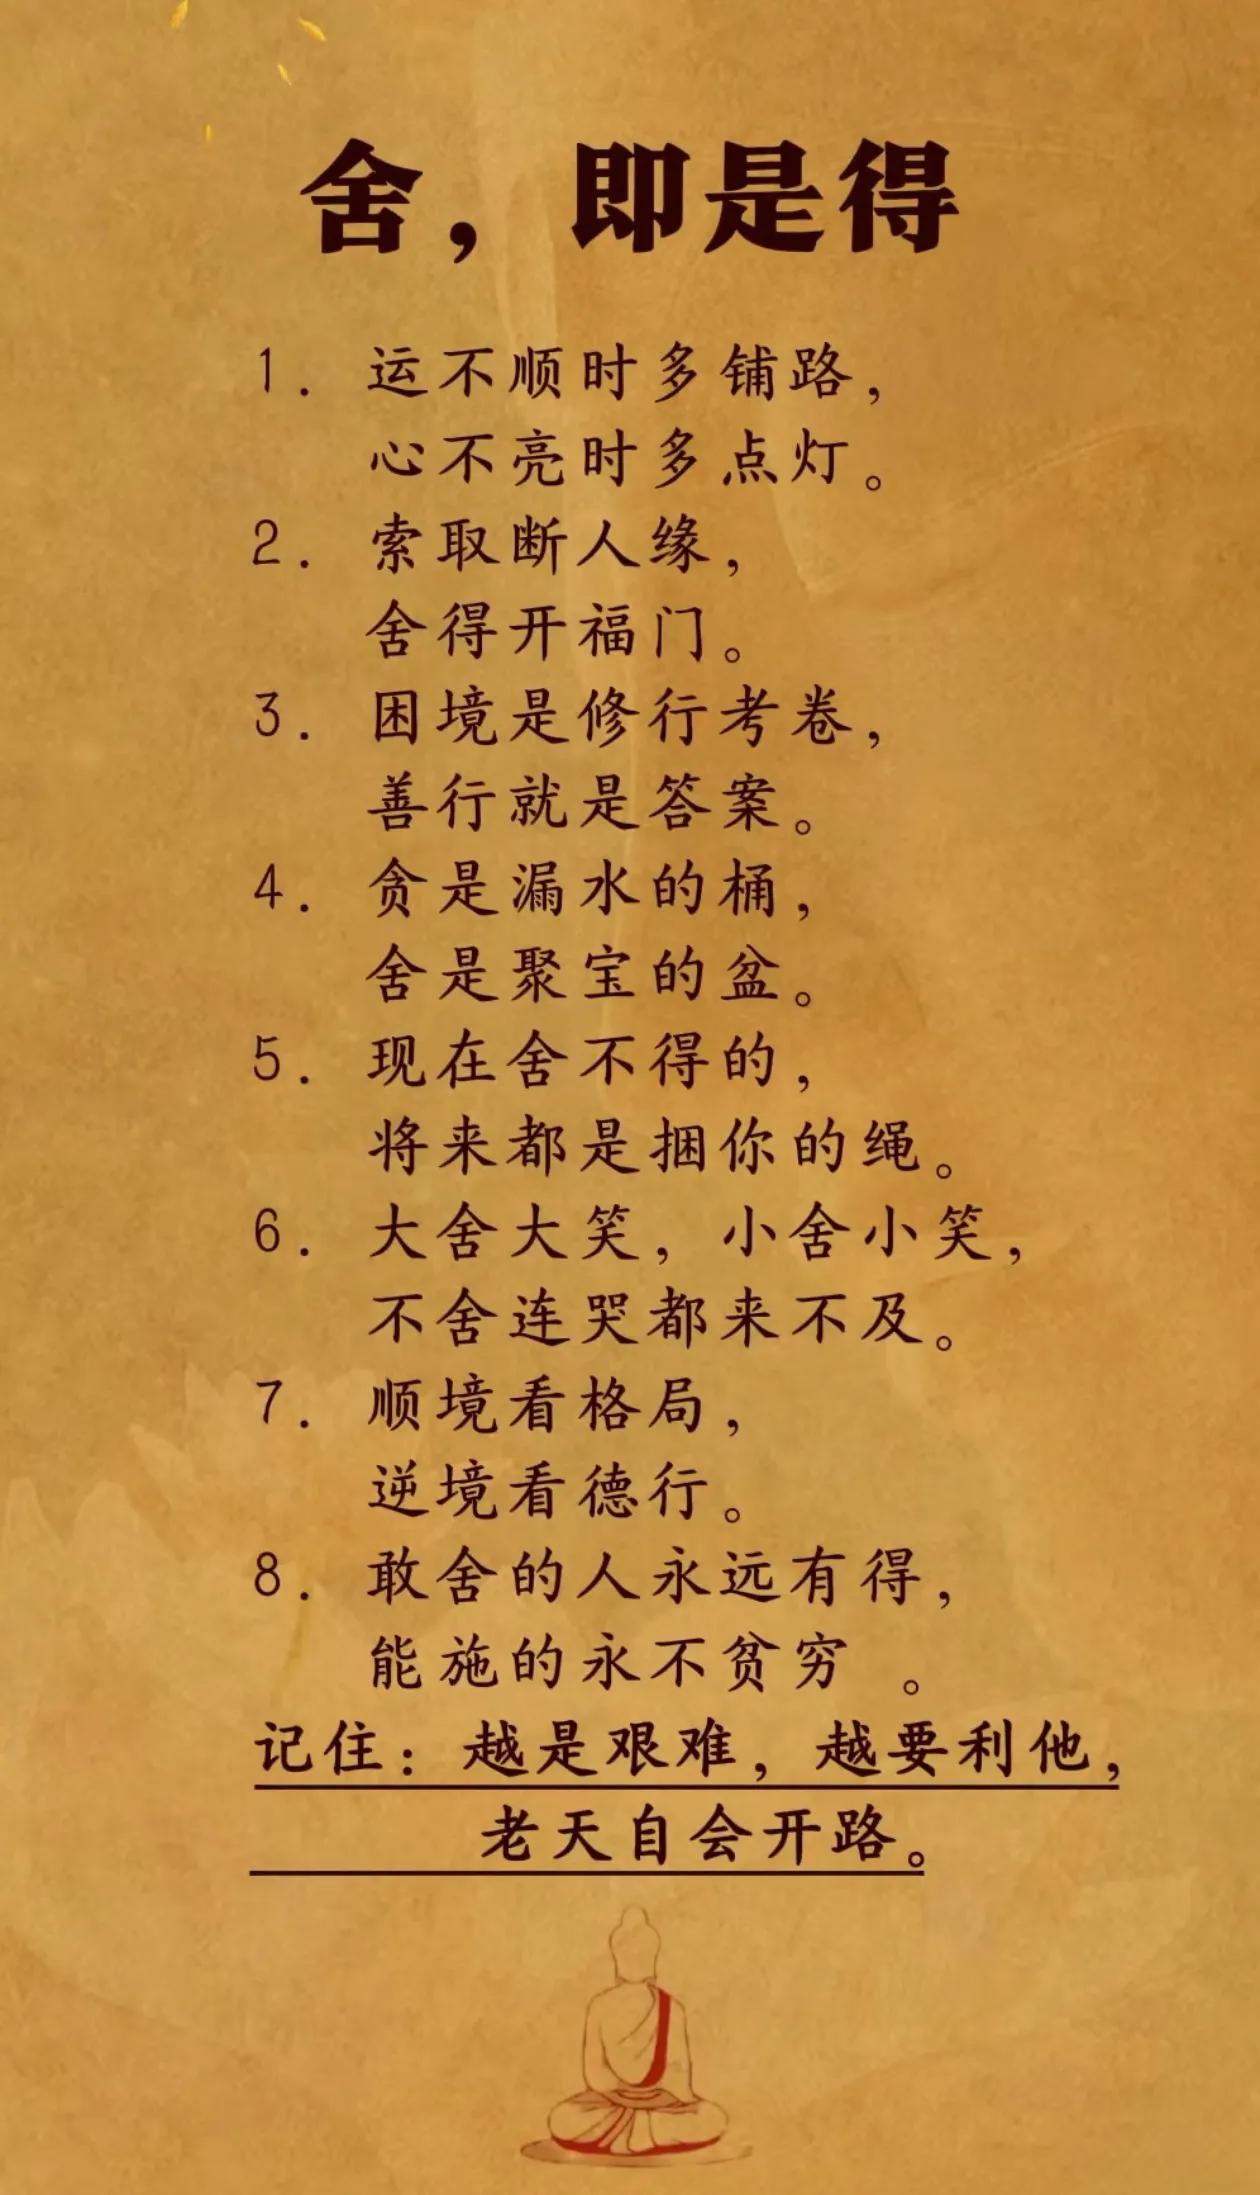 舍，即是得
1. 运不顺时多铺路，
心不亮时多点灯。
2. 索取断人缘，
舍得开福门。
3. 困境是修行考卷，
善行就是答案。
4. 贪是漏水的桶，
舍是聚宝的盆。
5. 现在舍不得的，
将来都是捆你的绳。
6. 大舍大笑，小舍小笑，
不舍连哭都来不及。
7. 顺境看格局，
逆境看德行。
8. 敢舍的人永远有得，
能施的永不贫穷 。
记住：越是艰难，越要利他，
老天自会开路。